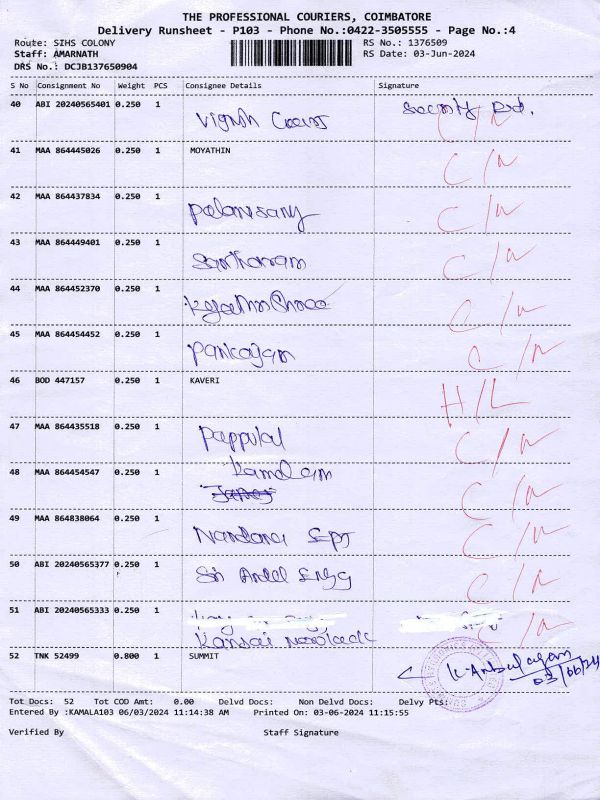 THE PROFESSIONAL COURIERS, COIMBATORE
Delivery Runsheet - P103 - Phone No.:0422-3505555 - Page No.:4
Route: SIHS COLONY RS No.: 1376509
Staff: AMARNATH RS Date: 03-Jun-2024
DRS No.: DCJB137650904
S No Consignment No Weight PCS Consignee Details Signature
40 ABI 20240565401 0.250 1 Vignsh C/N
41 MAA 864445026 0.250 1 MOYATHIN C/N
42 MAA 864437834 0.250 1 Palanisamy C/N
43 MAA 864449401 0.250 1 Santhanam C/N
44 MAA 864452370 0.250 1 C/N
45 MAA 864454452 0.250 1 Pankajam C/N
46 BOD 447157 0.250 1 KAVERI H/L
47 MAA 864435518 0.250 1 Pappulal C/N
48 MAA 864454547 0.250 1 Kamalam C/N
49 MAA 864838064 0.250 1 Nandana C/N
50 ABI 20240565377 0.250 1 Sri Andal Engg C/N
51 ABI 20240565333 0.250 1 C/N
Kansai
52 TNK 52499 0.800 1 SUMMIT
03/06/24
Tot Docs: 52 Tot COD Amt: 0.00 Delvd Docs: Non Delvd Docs: Delvy Pts:
Entered By :KAMALA103 06/03/2024 11:14:38 AM Printed On: 03-06-2024 11:15:55
Verified By Staff Signature